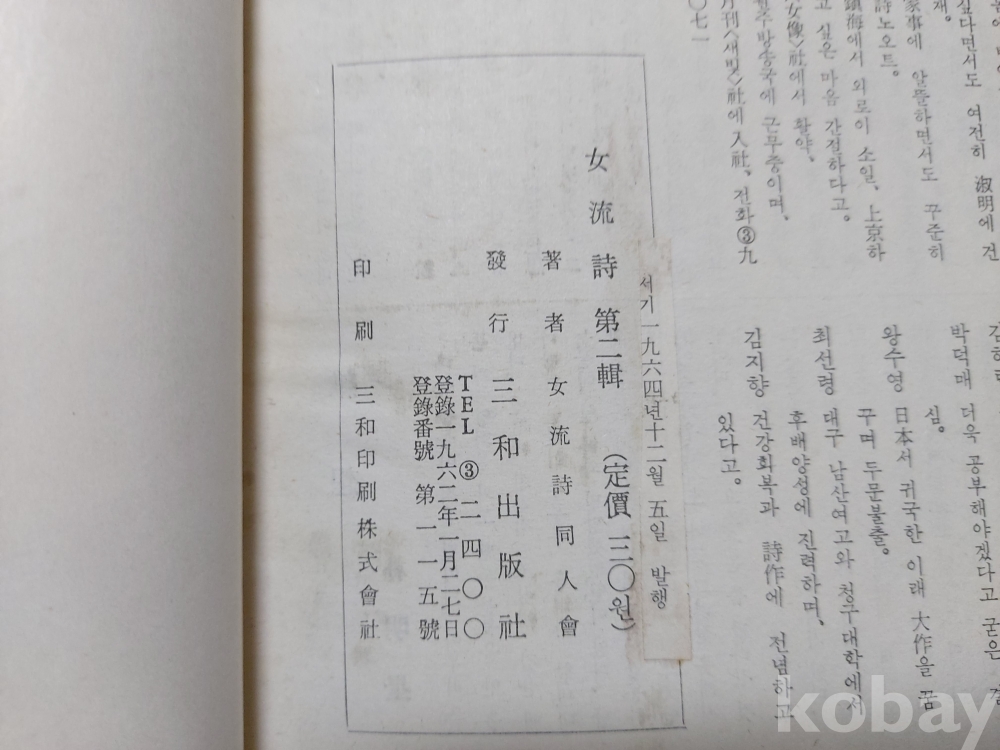 싶다면서도 여전히 淑明에 건
재。
家事에 알뜰하면서도 꾸준히
詩노오트。
鎭海에서 외로이 소일, 上京하
고 싶은 마음 간절하다고。
女像〉社에서 활약。
주방송국에 근무중이며,
月刊〈새벗〉社에 入社, 전화③九
〇七一
박덕매 더욱 공부해야겠다고 굳은 결
심。
왕수영 日本서 귀국한 이래 大作을 꿈
꾸며 두문불출。
최선령 대구 남산여고와 청구대학에서
후배양성에 진력하며,
김지향 건강회복과 詩作에 전념하고
있다고。
서기 一九六四년十二월 五일 발행
女流詩 第二輯 (定價 三〇원)
著者 女流詩同人會
發行 三和出版社
TEL ③ 二四〇〇
登錄一九六二年一月二七日
登錄番號 第一一五號
印刷 三和印刷株式會社
kobay